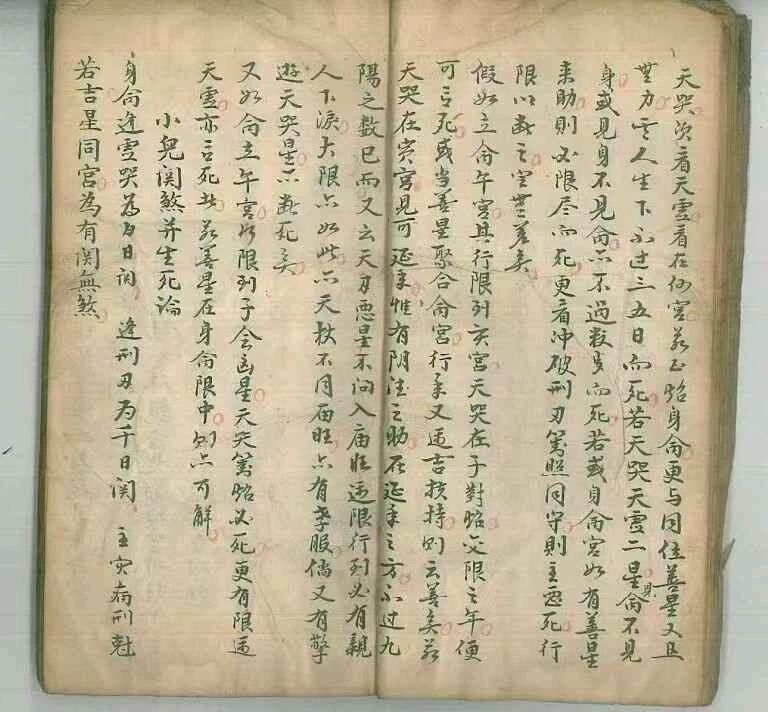 天哭次看天虛看在何宮若正照身命更与同位善星又且
無力主人生下不过三五日而死若天哭天虛二星命不見
身或見身不見命亦不過数岁而死若或身命宮如有善星
来助則必限尽而死更看冲破刑刃篤照同守則主惡死行
限以断之定無差矣
假如立命午宮其行限到亥宮天哭在子對照交限之年便
可言死或当善星聚合命宮行年又逢吉扶持則云善矣若
天哭在宾宮見可延年惟有阴德之助在延年之方不过九
陽之数已而又云天刃惡星不问入庙旺逢限行到必有親
人下淚大限亦如此亦天杖不同庙旺亦有孝服倘又有擎
遊天哭星亦断死矣
又如命立午宮如限到子会凶星天哭篤照必死更有限逢
天虛亦言死此若善星在身命限中則亦可解
小兒関煞并生死論
身命逢虛哭為百日関 逢刑刃为千日関 主灾病刑尅
若吉星同宮為有関無煞